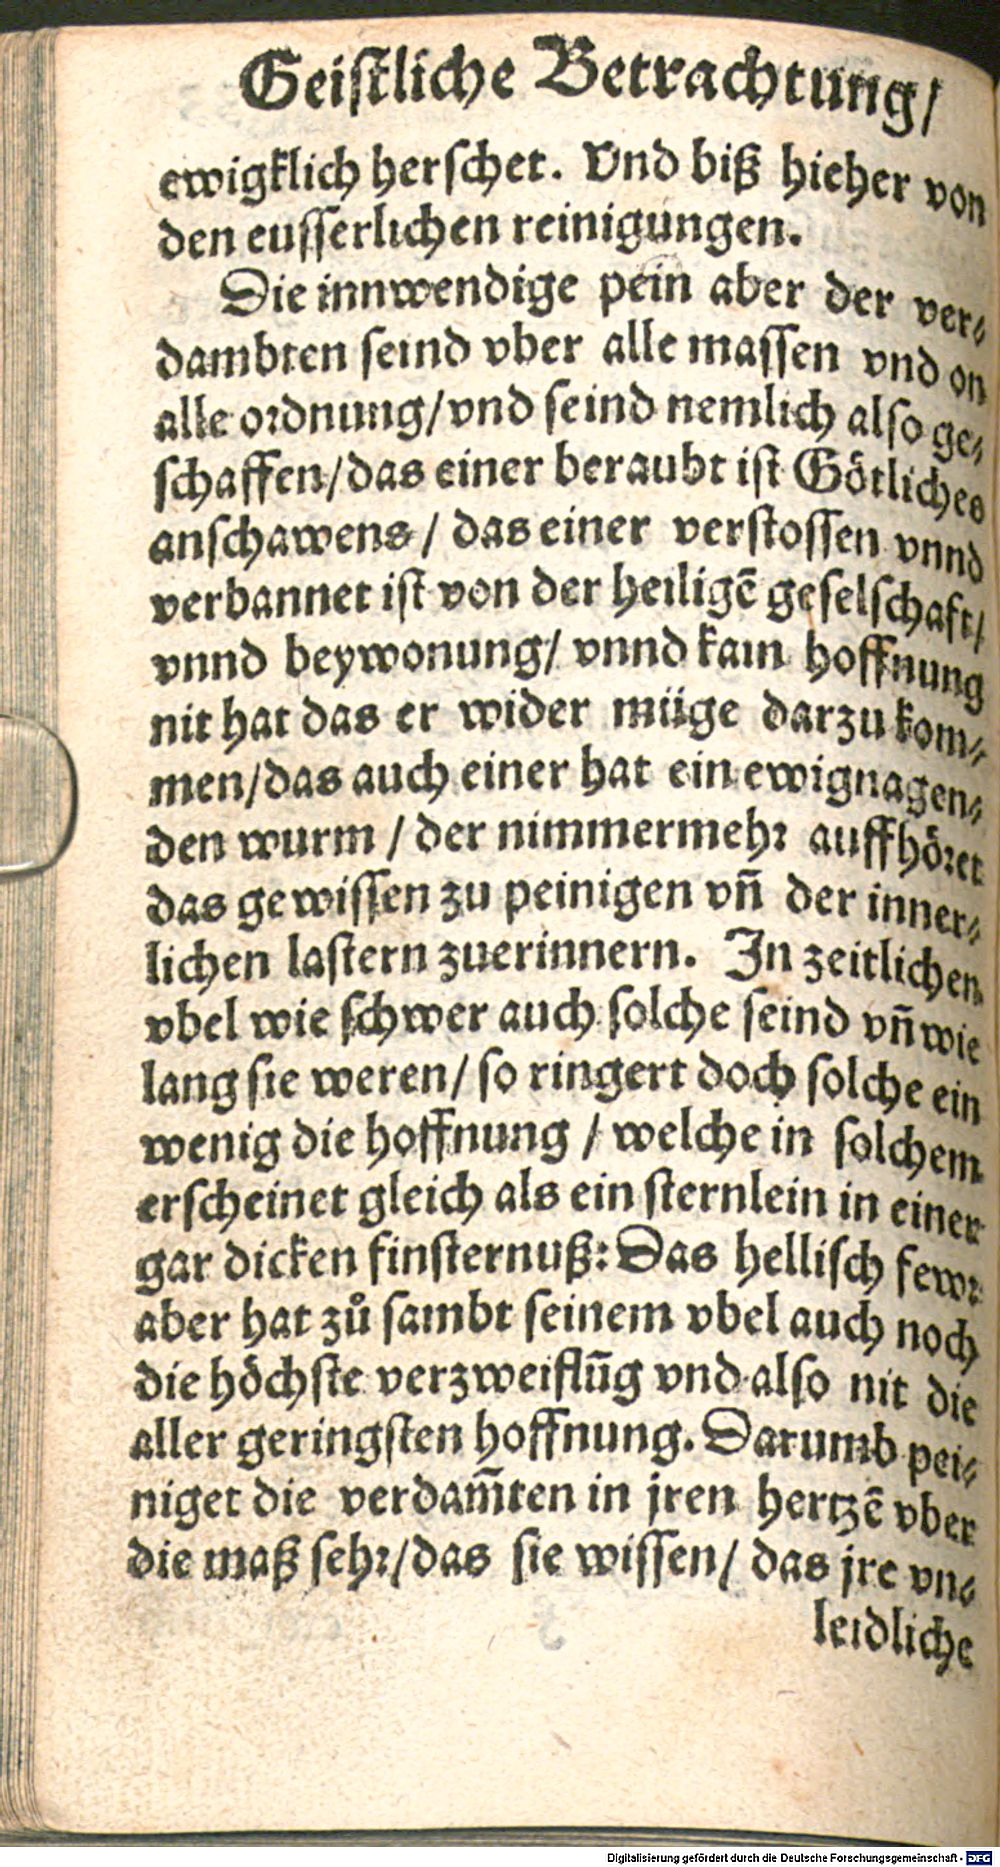 Geiſtliche Betrachtung/
ewigklich herſchet. Vnd biß hieher von
den euſſerlichen reinigungen.
Die innwendige pein aber der ver⸗
dambten ſeind vber alle maſſen vnd on
alle ordnung/vnd ſeind nemlich alſo ge⸗
ſchaffen/das einer beraubt iſt Götliches
anſchawens/ das einer verſtoſſen vnnd
verbannet iſt von der heiligē geſelſchaft/
vnnd beywonung/ vnnd kain hoffnung
nit hat das er wider müge darzu kom⸗
men/das auch einer hat ein ewignagen⸗
den wurm / der nimmermehr auffhöret
das gewiſſen zu peinigen vn̄ der inner⸗
lichen laſtern zuerinnern. In zeitlichen
vbel wie ſchwer auch ſolche ſeind vn̄ wie
lang ſie weren/ ſo ringert doch ſolche ein
wenig die hoffnung / welche in ſolchem
erſcheinet gleich als ein ſternlein in einer
gar dicken finſternuß: Das helliſch fewr
aber hat zů ſambt ſeinem vbel auch noch
die höchſte verzweiflūg vnd alſo nit die
aller geringſten hoffnung. Darumb pei⸗
niget die verdam̄ten in jren hertzē vber
die maß ſehr/das ſie wiſſen/ das jre vn⸗
leidliche
Digitalisierung gefördert durch die Deutsche Forschungsgemeinschaft - DFG